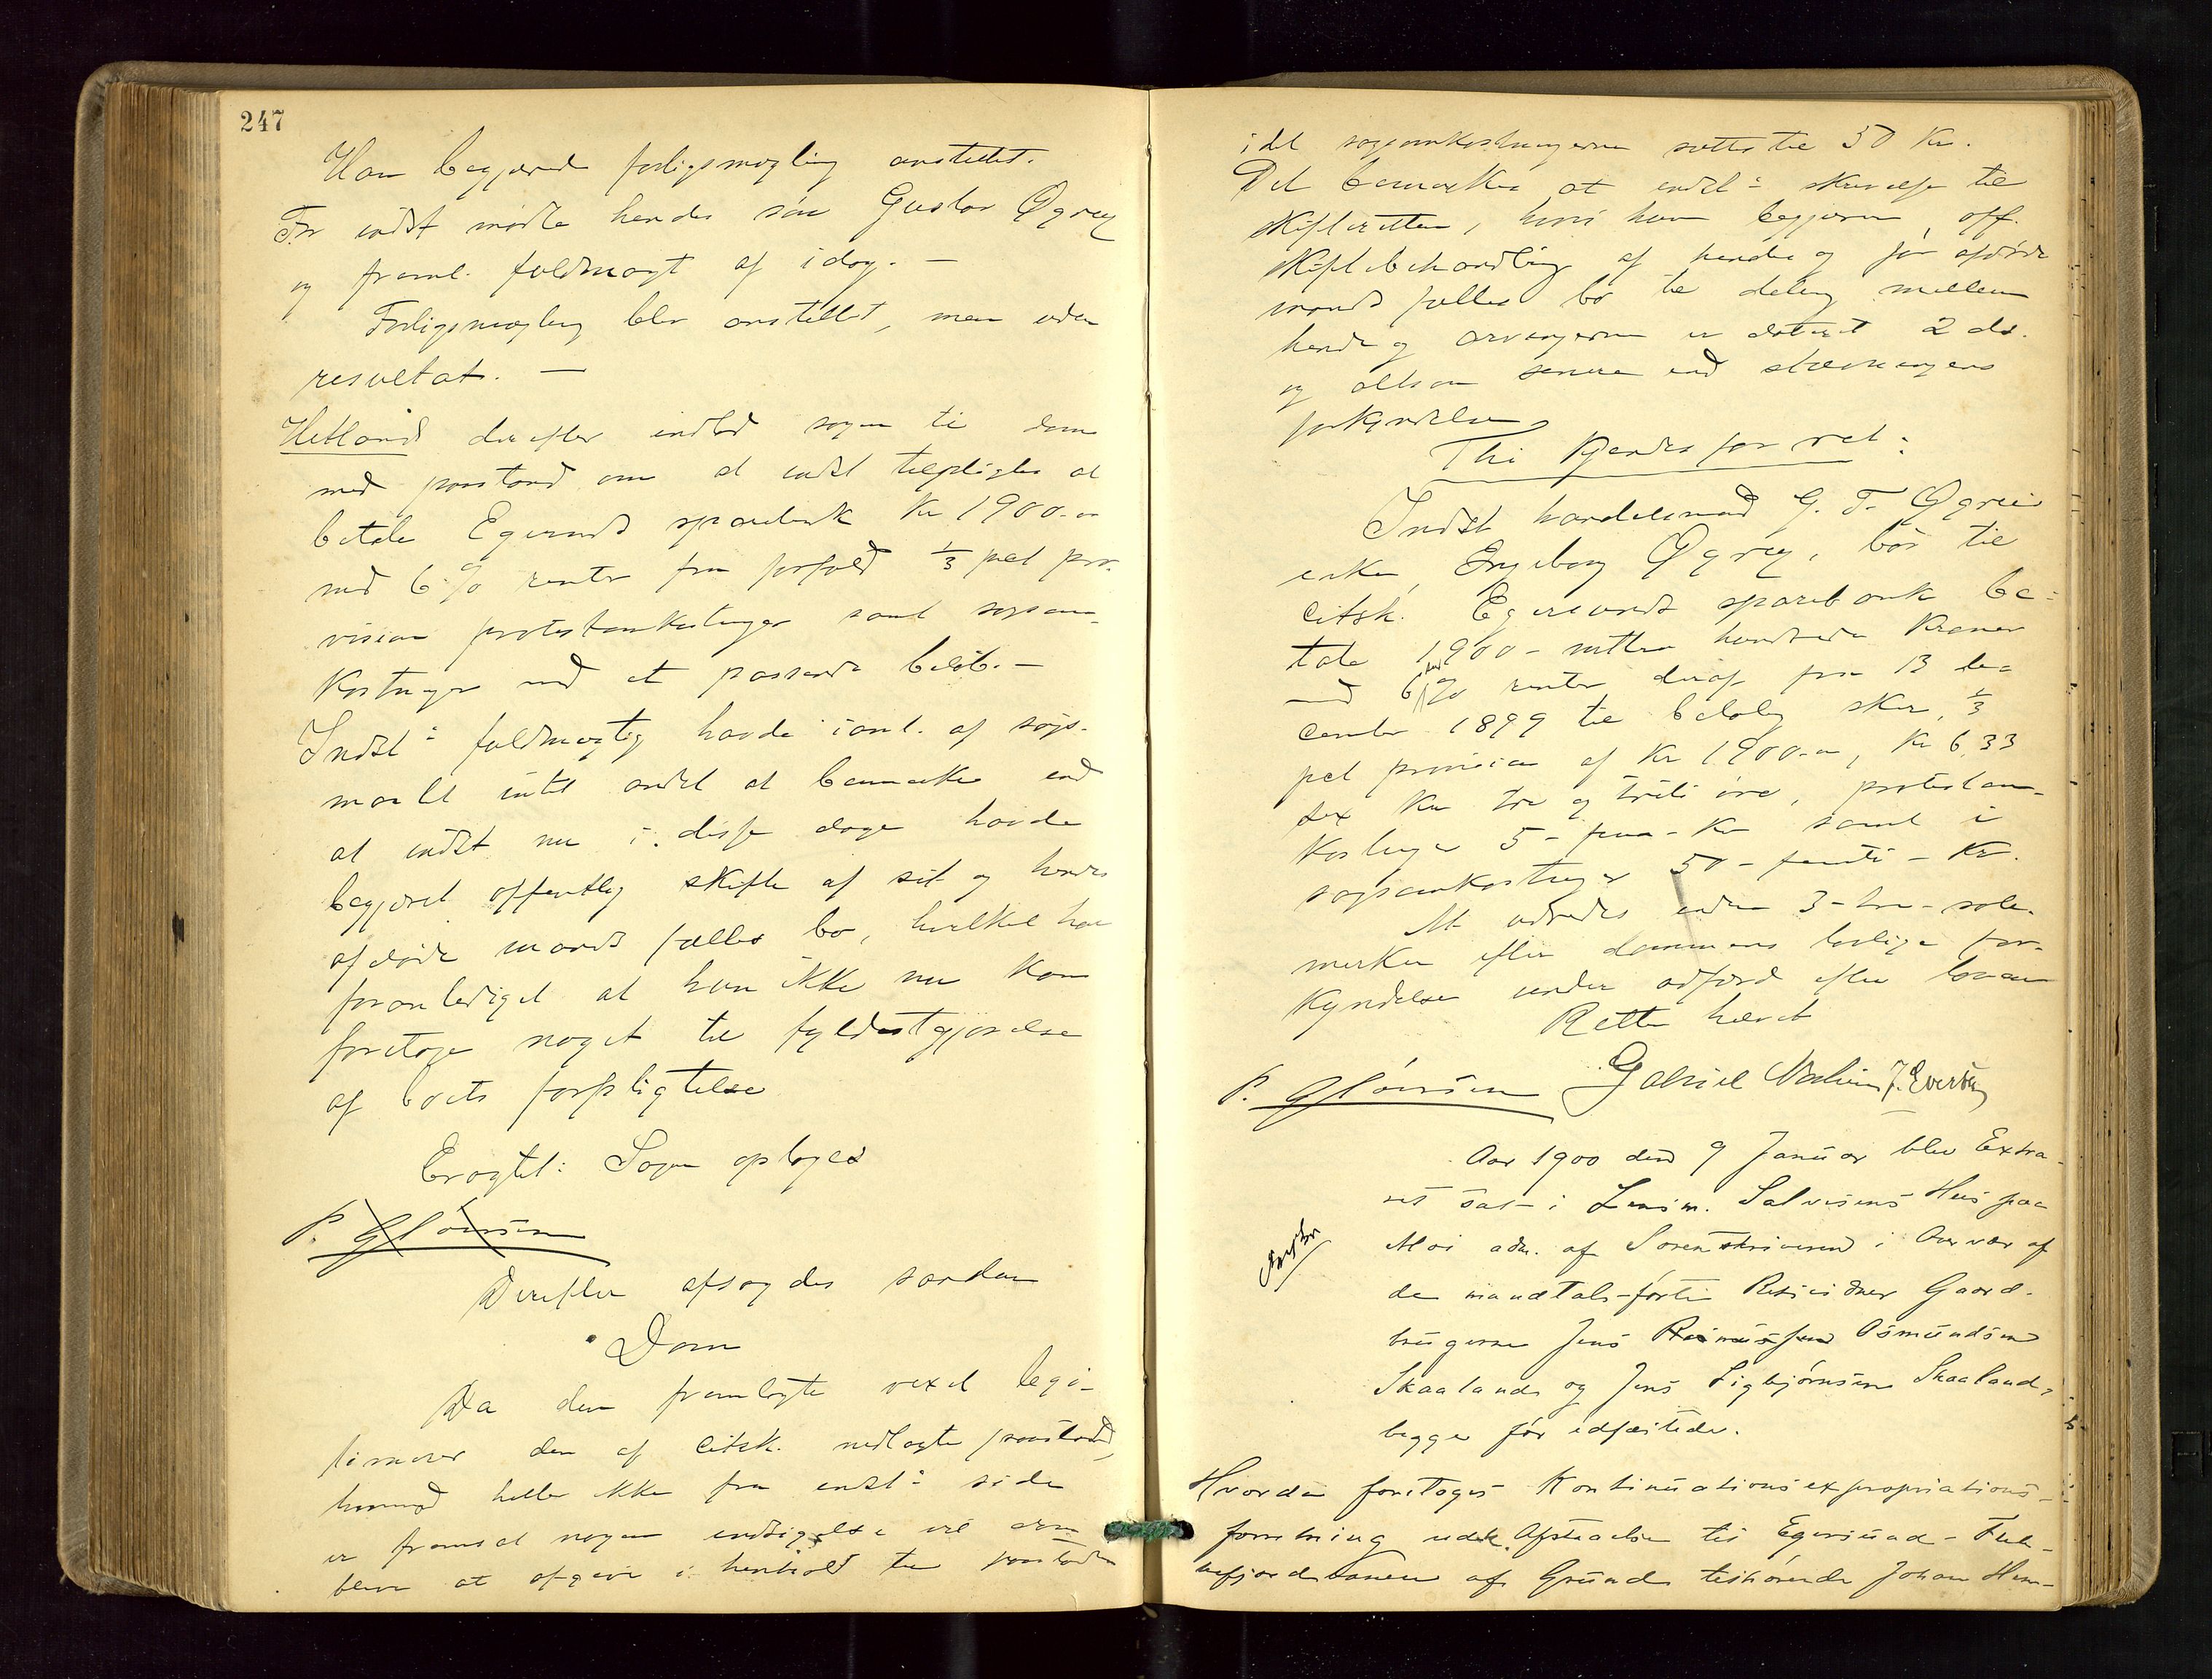 247
Han begjærede forligsmægling anstillet.
For indst mødte hendes søn Gustav Øgrey
og freml. fuldmagt af idag. —
Forligsmægling blev anstillet, men uden
resultat. —
Hetland derefter indlod sagen til dom
med paastand om at indst tilpligtes at
betale Egersunds sparebank Kr 1900.00
med 6 % renter fra forfald 1/3 pct pro-
vision protestomkostninger samt sagsom-
kostninger med et passende beløb. —
Indst:s fuldmægtig havde i anl. af søgs-
maalet intet andet at bemærke end
at indst nu i disse dage havde
begjæret offentlig skifte af sit og hendes
afdøde mands fælles bo, hvilket har
foranlediget at hun ikke nu kan
foretage noget til fyldestgjørelse
af boets forpligtelse
Eragtet: Sagen optages
P. Glørsen
Derefter afsagdes saadan
Dom
Da den fremlagte vexel legi-
timerer den af citsk. nedlagte paastand,
hvorimod heller ikke fra indst:s side
er fremsat nogen indsigelse vil dom
blive at afgive i henhold til paastanden
idet sagsomkostningerne sættes til 50 Kr.
Det bemærkes at indst:s skrivelse til
skifteretten, hvori hun begjærer off.
skiftebehandling af hendes og før afdøde
mands fælles bo til deling mellem
hende og arvingerne er dateret 2 ds.
og altsaa senere end stævningens
forkyndelse
Thi kjendes for ret:
Indst handelsmand G. T. Øgreis
enke, Engeborg Øgrey, bør til
citsk. Egersunds sparebank be-
tale 1900 - nitten hundrede Kroner
med 6 % renter deraf fra 13 de-
cember 1899 til betaling sker, 1/3
pct provision af Kr 1900.00, Kr 6,33
sex Kr tre og treti øre, protestom-
kostninger 5 - fem - Kr samt i
sagsomkostninger 50 - femti - Kr.
At udredes inden 3 - tre - sole-
merker efter dommens lovlige for-
kyndelse under adfærd efter loven
Retten hævet
P. Glørsen Gabriel J. Evertsen
Aar 1900 den 9 Januar blev Extra-
ret sat i Lensm. Salvesens Hus paa
Moi adm. af Sorenskriveren i Overvær af
de mandtalsførte Retsvidner Gaard-
brugerne Jens Rasmussen Osmundsen
Skaaland og Jens Sigbjørnsen Skaaland,
begge før edfæstede.
Hvorda foretoges Kontinuationsexpropriations-
forretning Afstaaelse til Egersund - Flek-
kefjordbanen af Grund tilhørende Johan Hem-